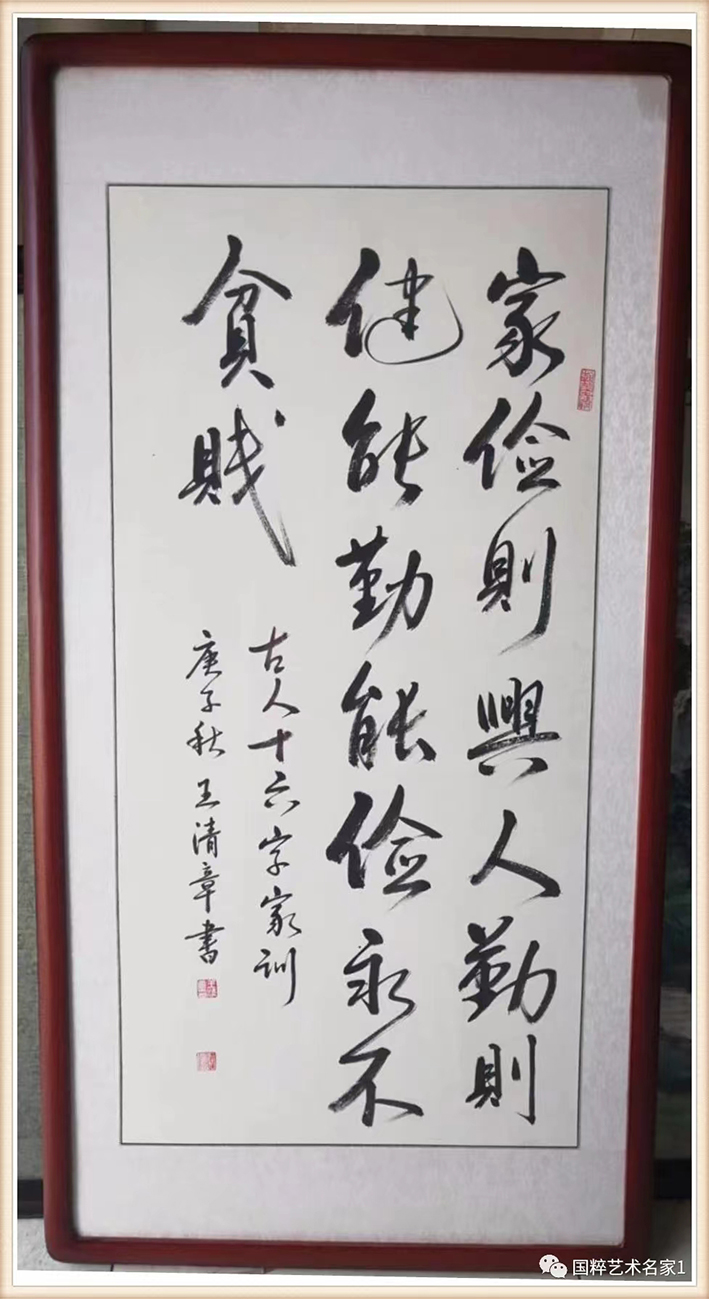 家俭則興人勤則
健能勤能俭永不
貧賤
古人十六字家训
庚子秋 王清章書
国粹艺术名家1